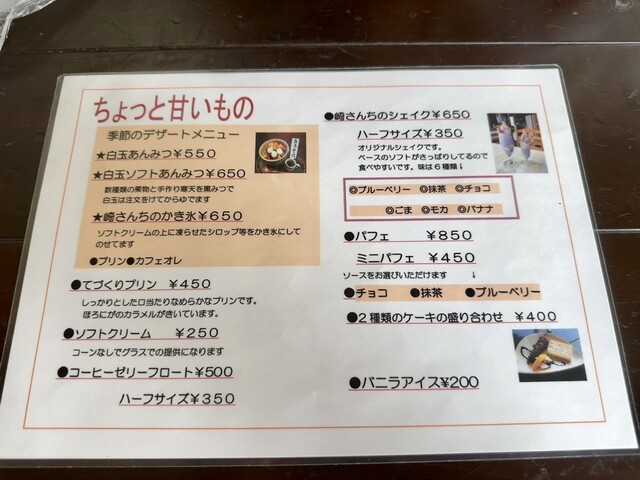 ちょっと甘いもの
季節のデザートメニュー
★白玉あんみつ￥550
★白玉ソフトあんみつ￥650
数種類の果物と手作り寒天を黒みつで
白玉は注文をうけてからゆでます
★崎さんちのかき氷￥650
ソフトクリームの上に凍らせたシロップ等をかき氷にして
のせてます
●プリン●カフェオレ
●てづくりプリン ￥450
しっかりとした口当たりなめらかなプリンです。
ほろにがのカラメルがきいています。
●ソフトクリーム ￥250
コーンなしでグラスでの提供になります
●コーヒーゼリーフロート￥500
ハーフサイズ￥350
●崎さんちのシェイク￥650
ハーフサイズ￥350
オリジナルシェイクです。
ベースのソフトがさっぱりしてるので
食べやすいです。味は６種類↓
◎ブルーベリー ◎抹茶 ◎チョコ
◎ごま ◎モカ ◎バナナ
●パフェ ￥850
ミニパフェ ￥450
ソースをお選びいただけます ↓
●チョコ ●抹茶 ●ブルーベリー
●２種類のケーキの盛り合わせ ￥400
●バニラアイス￥200